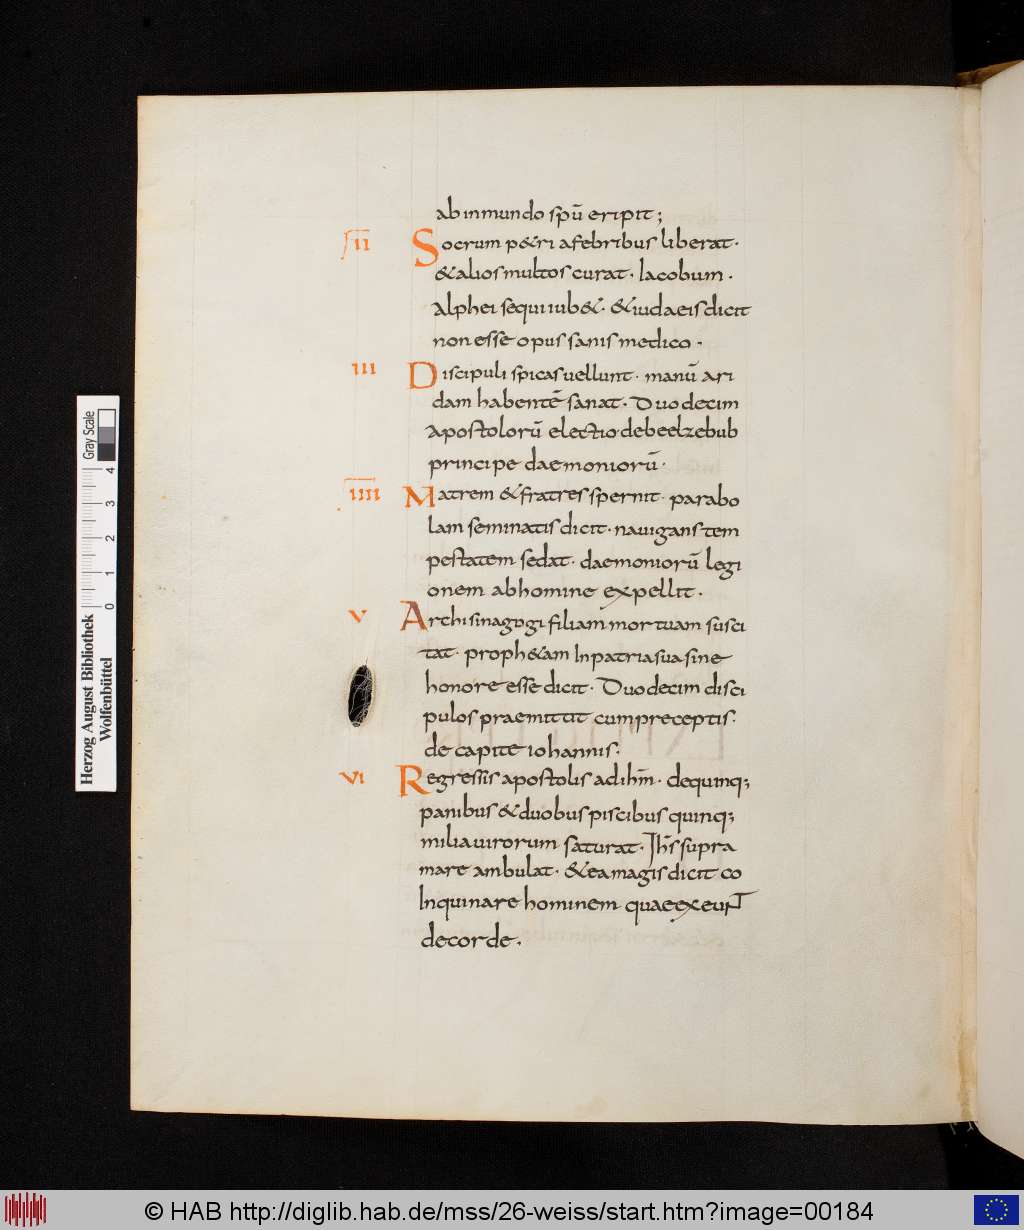 ab inmundo spū eripit;
II Socrum p&ri afebribus liberat·
&alios multos curat· Iacobum·
alphei sequi iub&· &iudaeis dicit
non esse opus sanis medico·
III Discipuli spicas uellunt· manū ari
dam habentē sanat· Duodecim
apostolorū electio debeelzebub
principe daemoniorū·
IIII Matrem &fratres spernit· parabo
lam seminatis dicit· nauigans tem
pestatem sedat· daemoniorū legi
onem abhomine expellit·
V Archisinagogi filiam mortuam susci
tat· proph&am Inpatria sua sine
honore esse dicit· Duodecim disci
pulos praemittit cum preceptis·
de capite iohannis·
VI Regressis apostolis ad ihm̄· dequinq;
panibus &duobus piscibus quinq;
milia uirorum saturat· Ihs̄ supra
mare ambulat· &ea magis dicit co
Inquinare hominem quae exeunt
decorde·
Herzog August Bibliothek
Wolfenbüttel
0 1 2 3 4
Gray Scale
© HAB http://diglib.hab.de/mss/26-weiss/start.htm?image=00184